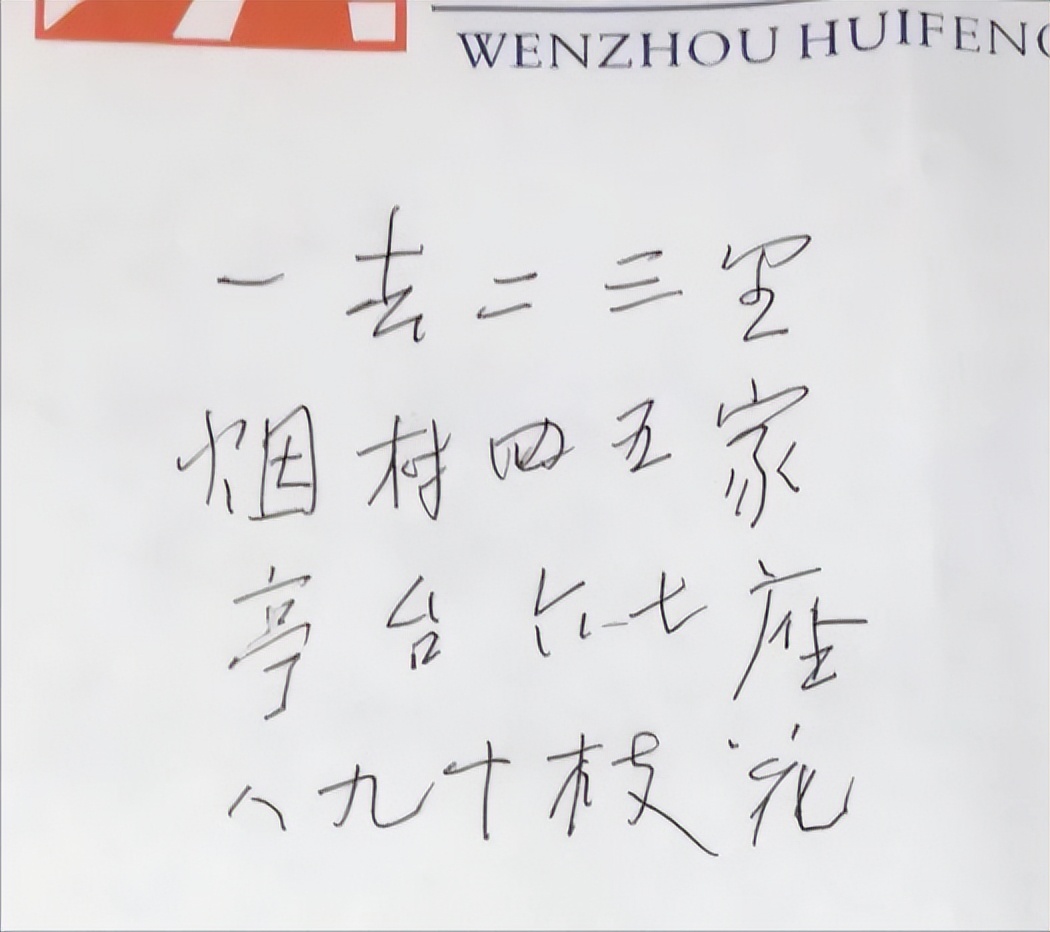 WENZHOU HUIFENG
一去二三里
烟村四五家
亭台六七座
八九十枝花